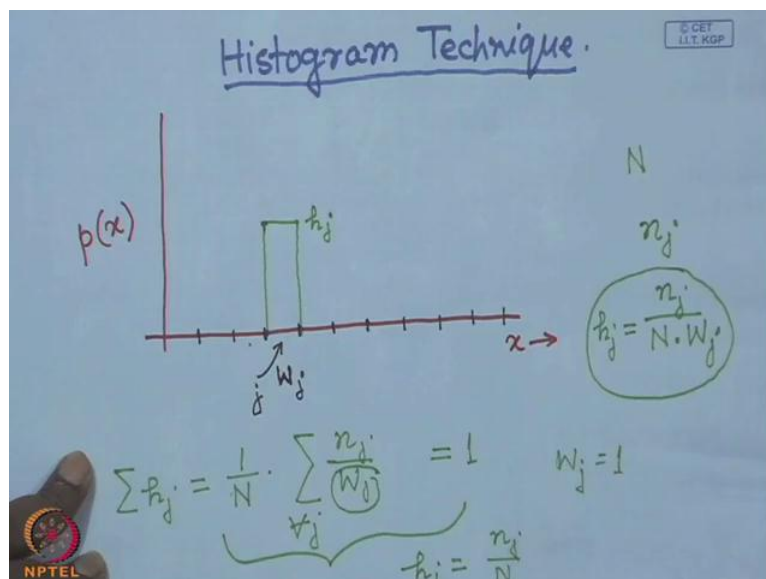 Histogram Technique.
© CET
I.I.T. KGP
N
p(x)
hj
nj
hj = nj / N · Wj
x →
j Wj
∑ hj = 1/N · ∑∀j nj / Wj = 1
Wj = 1
hj = nj / N
NPTEL